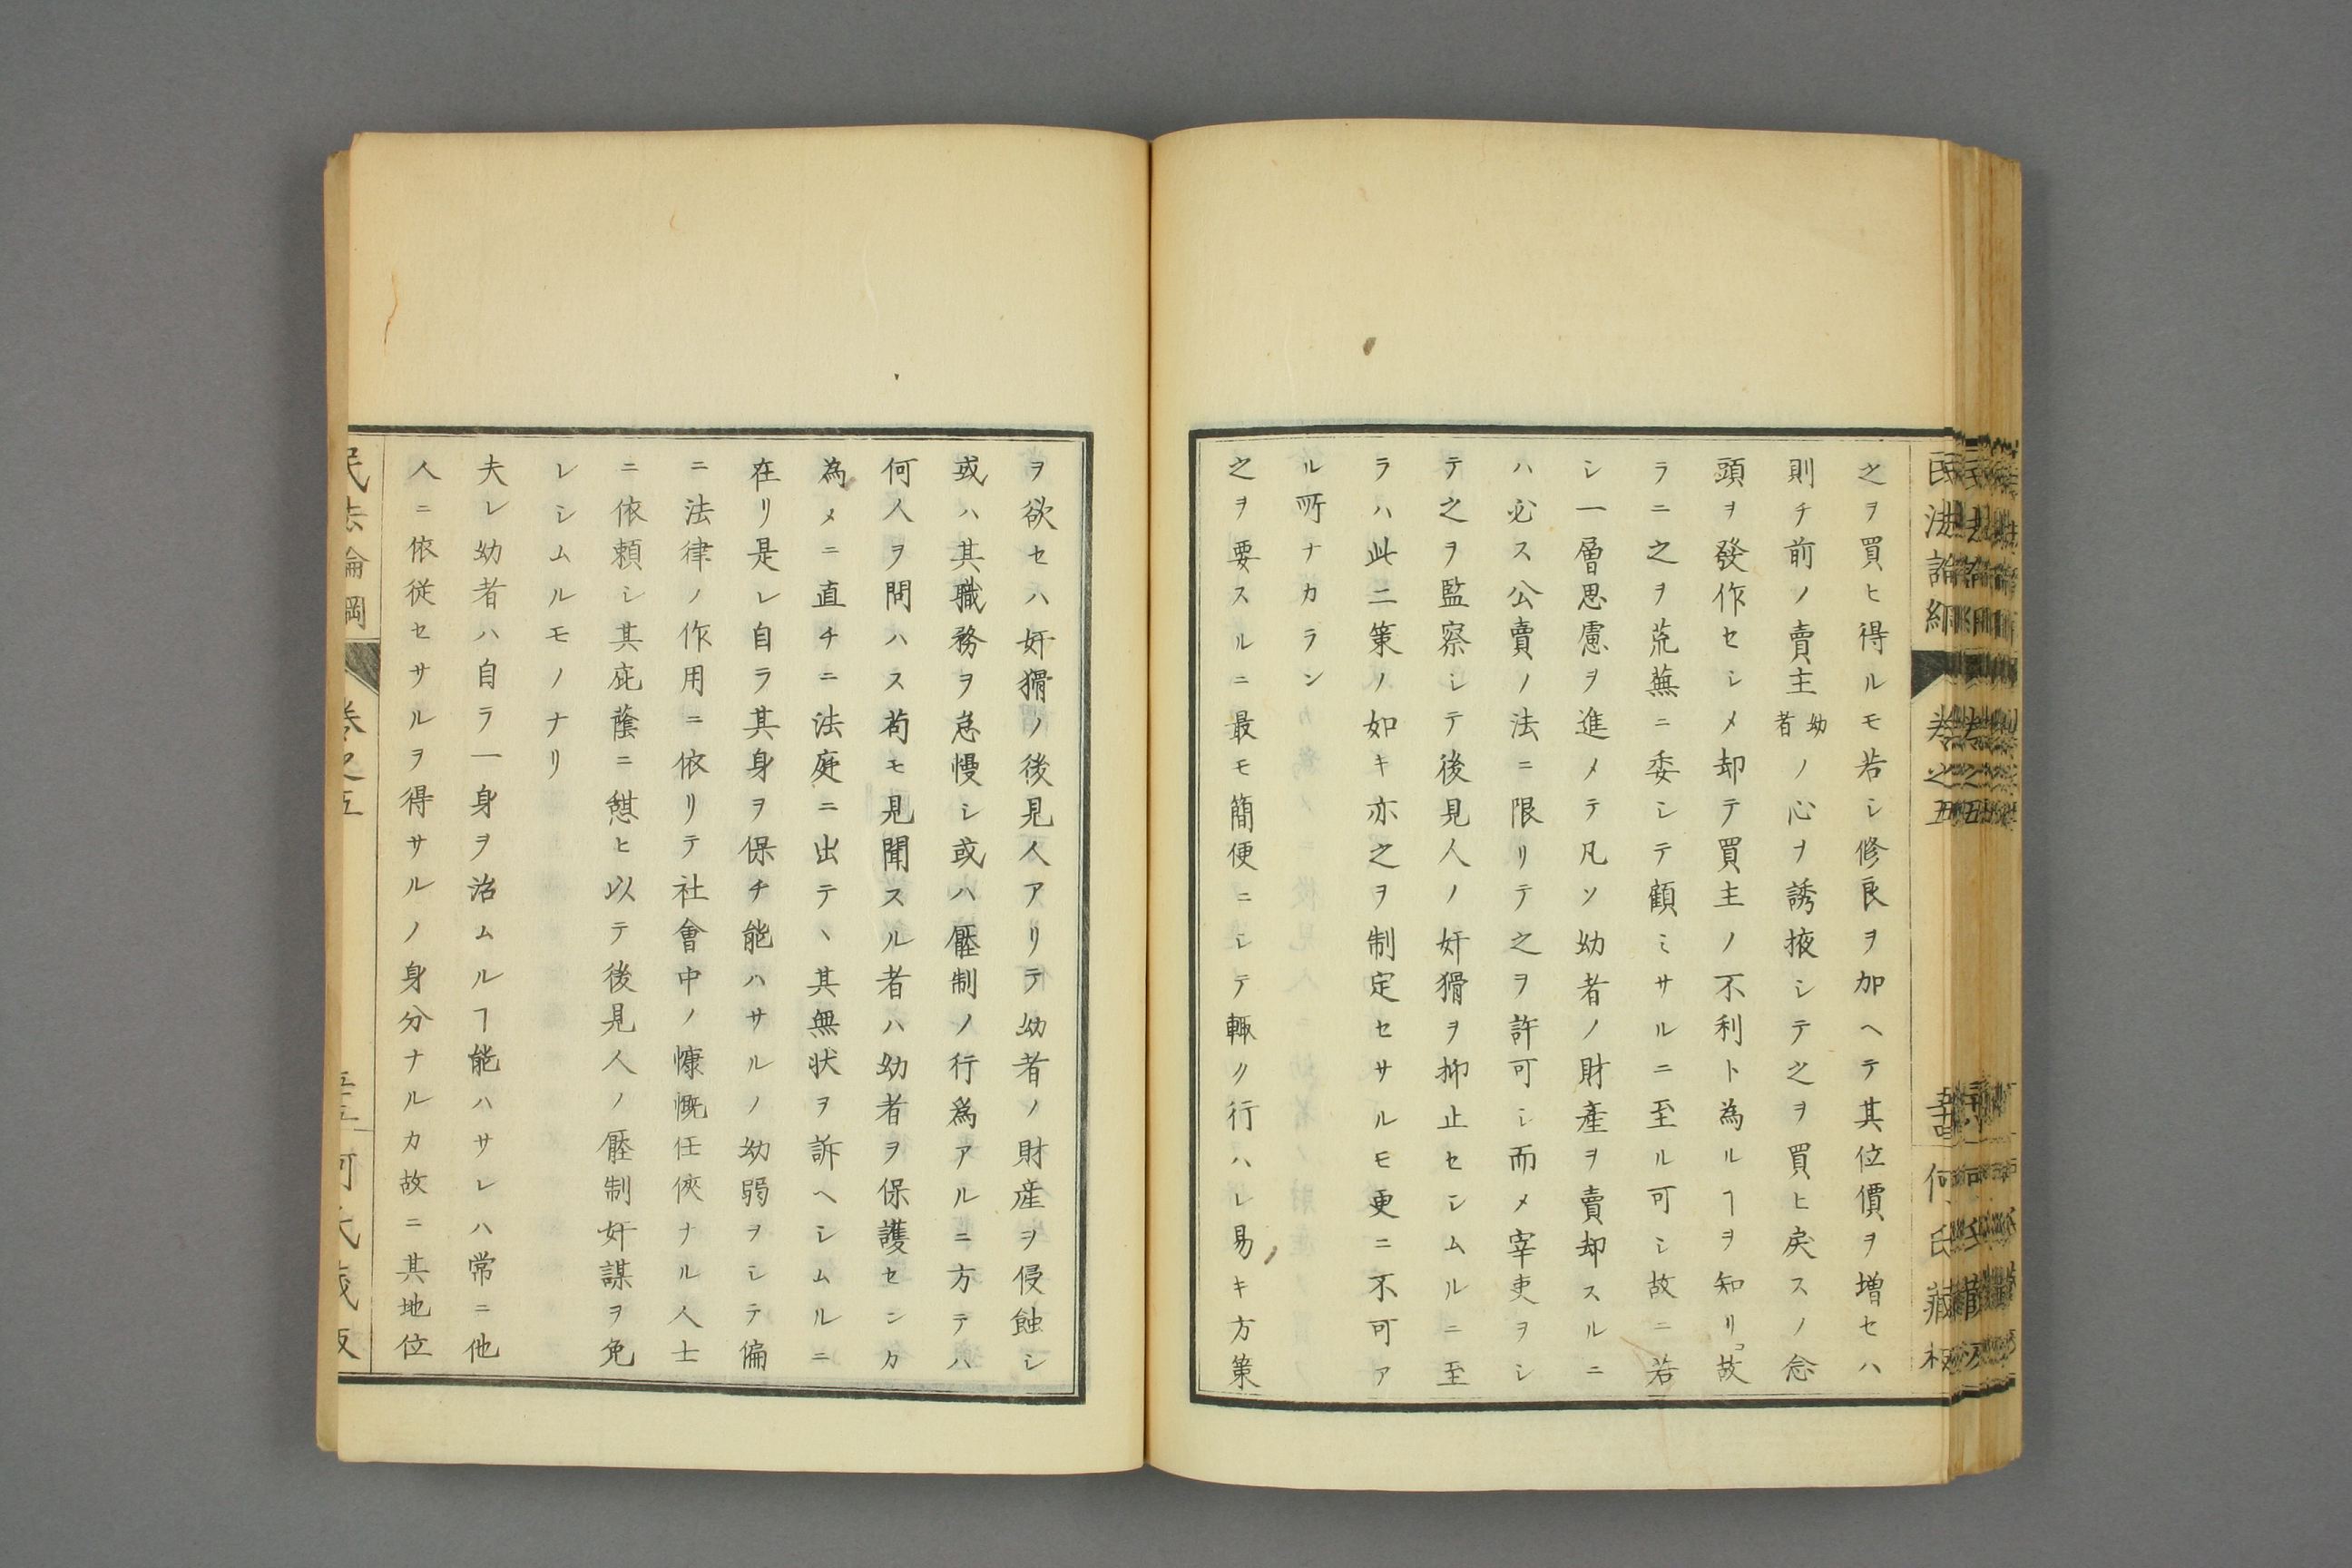 之ヲ買ヒ得ルモ若シ修良ヲ加ヘテ其位價ヲ增セハ
則チ前ノ賣主幼者ノ心ヲ誘掖シテ之ヲ買ヒ戾スノ念
頭ヲ發作セシメ却テ買主ノ不利ト為ルヿヲ知リ故
ラニ之ヲ荒蕪ニ委シテ顧ミサルニ至ル可シ故ニ若
シ一層思慮ヲ進メテ凡ソ幼者ノ財產ヲ賣却スルニ
ハ必ス公賣ノ法ニ限リテ之ヲ許可シ而メ宰吏ヲシ
テ之ヲ監察シテ後見人ノ奸猾ヲ抑止セシムルニ至
ラハ此二策ノ如キ亦之ヲ制定セサルモ更ニ不可ア
ル所ナカラン
之ヲ要スルニ最モ簡便ニシテ輙ク行ハレ易キ方策
ヲ欲セハ奸猾ノ後見人アリテ幼者ノ財産ヲ侵蝕シ
或ハ其職務ヲ怠慢シ或ハ壓制ノ行爲アルニ方テハ
何人ヲ問ハス苟モ見聞スル者ハ幼者ヲ保護センカ
為メニ直チニ法庭ニ出テヽ其無状ヲ訴ヘシムルニ
在リ是レ自ラ其身ヲ保チ能ハサルノ幼弱ヲシテ偏
ニ法律ノ作用ニ依リテ社會中ノ慷慨任俠ナル人士
ニ依頼シ其庇蔭ニ憇ヒ以テ後見人ノ壓制奸謀ヲ免
レシムルモノナリ
夫レ幼者ハ自ラ一身ヲ治ムルヿ能ハサレハ常ニ他
人ニ依従セサルヲ得サルノ身分ナルカ故ニ其地位
民法論綱 卷之五 五十五 何氏藏版